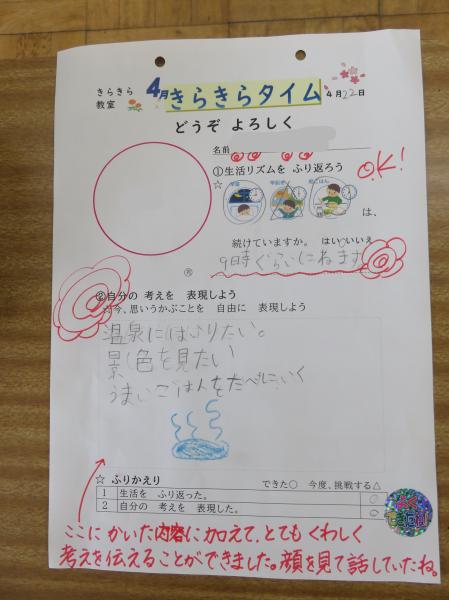 きらきら
教室
4月きらきらタイム
4月22日
どうぞ よろしく
名前
①生活リズムを ふり返ろう
OK!
☆
は、
続けていますか。 はい いいえ
9時ぐらいにねます
②自分の 考えを 表現しよう
☆今、思いうかぶことを 自由に 表現しよう
温泉にはいりたい。
景色を見たい
うまいごはんをたべにいく
☆ ふりかえり
できた○ 今度、挑戦する△
1 生活を ふり返った。 ○
2 自分の 考えを 表現した。 ○
ここに かいた内容に加えて、とても くわしく
考えを伝えることができました。顔を見て話していたね。